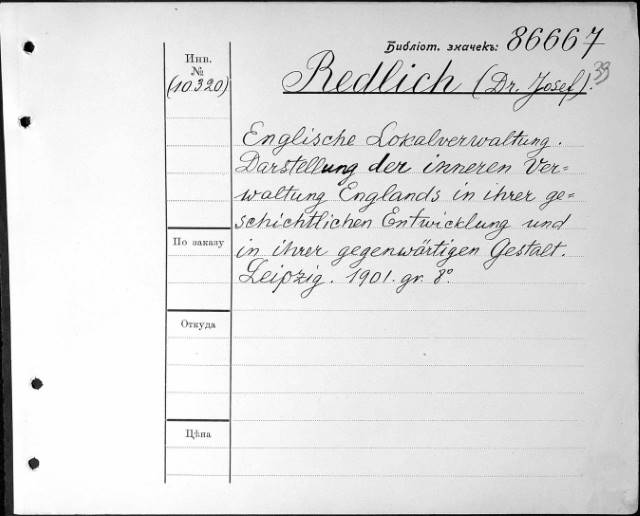 Библіот. значекъ: 86667
Инв.
№
(10320)
Redlich (Dr. Josef). 33
Englische Lokalverwaltung.
Darstellung der inneren Ver=
waltung Englands in ihrer ge=
schichtlichen Entwicklung und
in ihrer gegenwärtigen Gestalt.
Leipzig. 1901. gr. 8º.
По заказу
Откуда
Цѣна